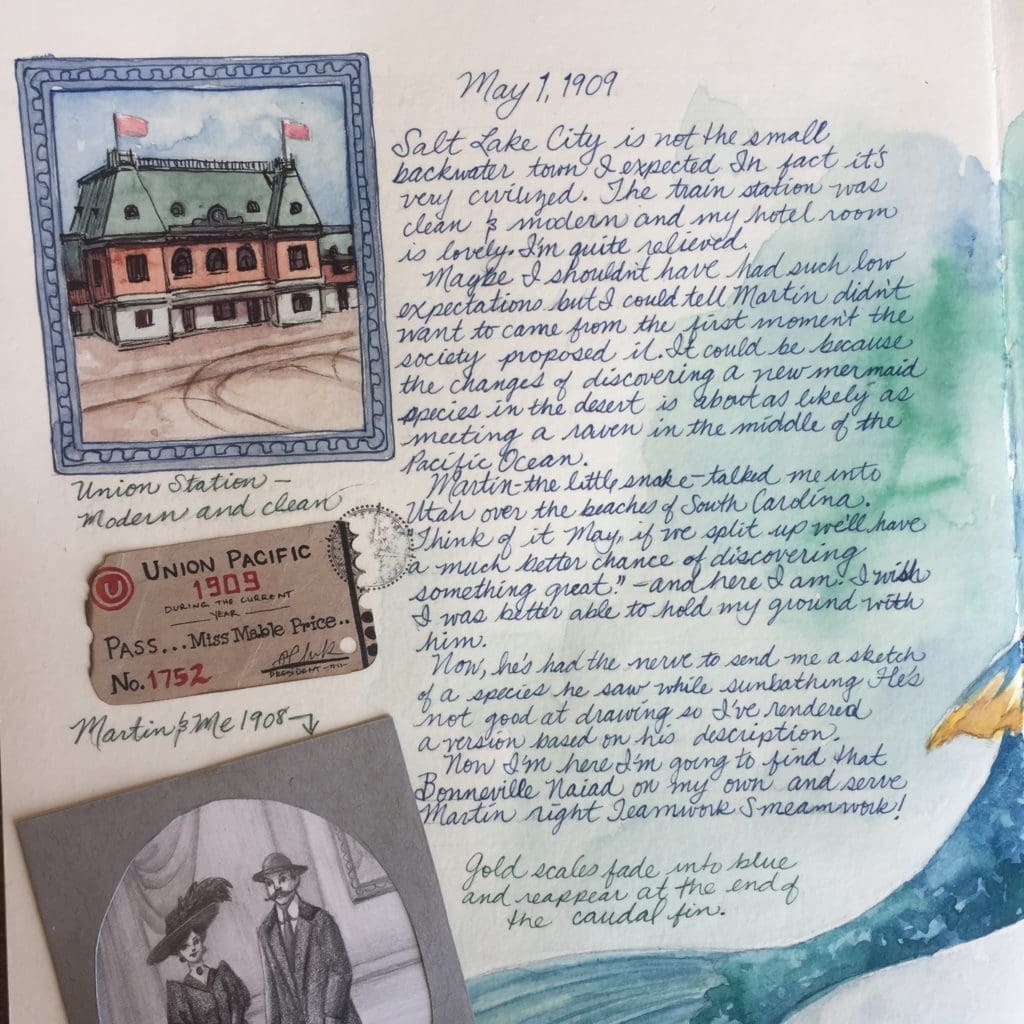 May 1, 1909
Salt Lake City is not the small
backwater town I expected In fact it's
very civilized. The train station was
clean & modern and my hotel room
is lovely. I'm quite relieved.
Maybe I shouldn't have had such low
expectations but I could tell Martin didn't
want to came from the first moment the
society proposed it. It could be because
the changes of discovering a new mermaid
species in the desert is about as likely as
meeting a raven in the middle of the
Pacific Ocean.
Martin-the little snake-talked me into
Utah over the beaches of South Carolina.
"Think of it May, if we split up we'll have
a much better chance of discovering
something great." -and here I am. I wish
I was better able to hold my ground with
him.
Now, he's had the nerve to send me a sketch
of a species he saw while sunbathing He's
not good at drawing so I've rendered
a version based on his description.
Now I'm here I'm going to find that
Bonneville Naiad on my own and serve
Martin right Teamwork Smeamwork!
Gold scales fade into blue
and reappear at the end of
the caudal fin.
Union Station -
Modern and clean
U
UNION PACIFIC
1909
DURING THE CURRENT
YEAR
PASS... Miss Mable Price..
No. 1752
PRESIDENT
Martin & Me 1908